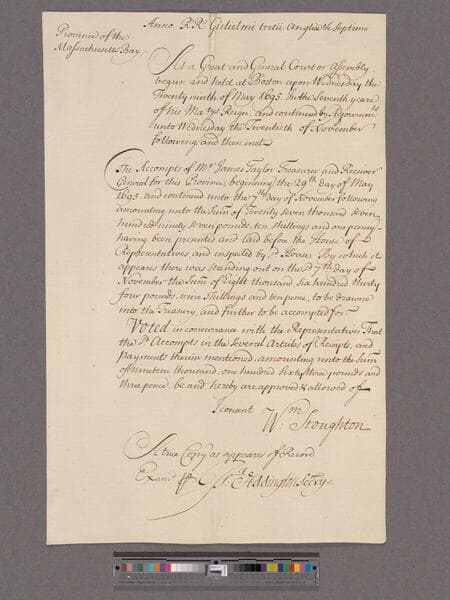 Anno R Rs Gulielmi tertii Angliæ &c Septimo
Province of the
Massachusetts Bay.
At a Great and General Court or Assembly
begun and held at Boston upon Wednesday the
Twenty ninth of May 1695. In the Seventh yeare
of his Matys Reign, and continued by Adjournmts
unto Wednesday the Twentieth of November
following and then met
The Accompts of Mr James Taylor Treasurer and Receiver
General for this Province, beginning the 29th day of May
1695. and continued unto the 7th day of November following
amounting unto the Summ of Twenty seven thousand seven
hundred ninety seven pounds, ten shillings and one penny
having been presented and laid before the House of
Representatives, and inspected by sd House, By which it
appears there was standing out on the sd 7th day of
November the Summ of Eight thousand, six hundred thirty
four pounds, nine shillings and ten pence, to be drawne
into the Treasury, and further to be accompted for.
Voted in concurrance with the Representatives That
the sd Accompts in the Several Articles of Receipts, and
payments therein mentioned, amounting unto the Summ
of nineteen thousand, one hundred sixty three pounds and
three pence, be and hereby are approved & allowed of
I consent
Wm Stoughton
A true Copy as appears of Record
Examd
Js Addington Secry.